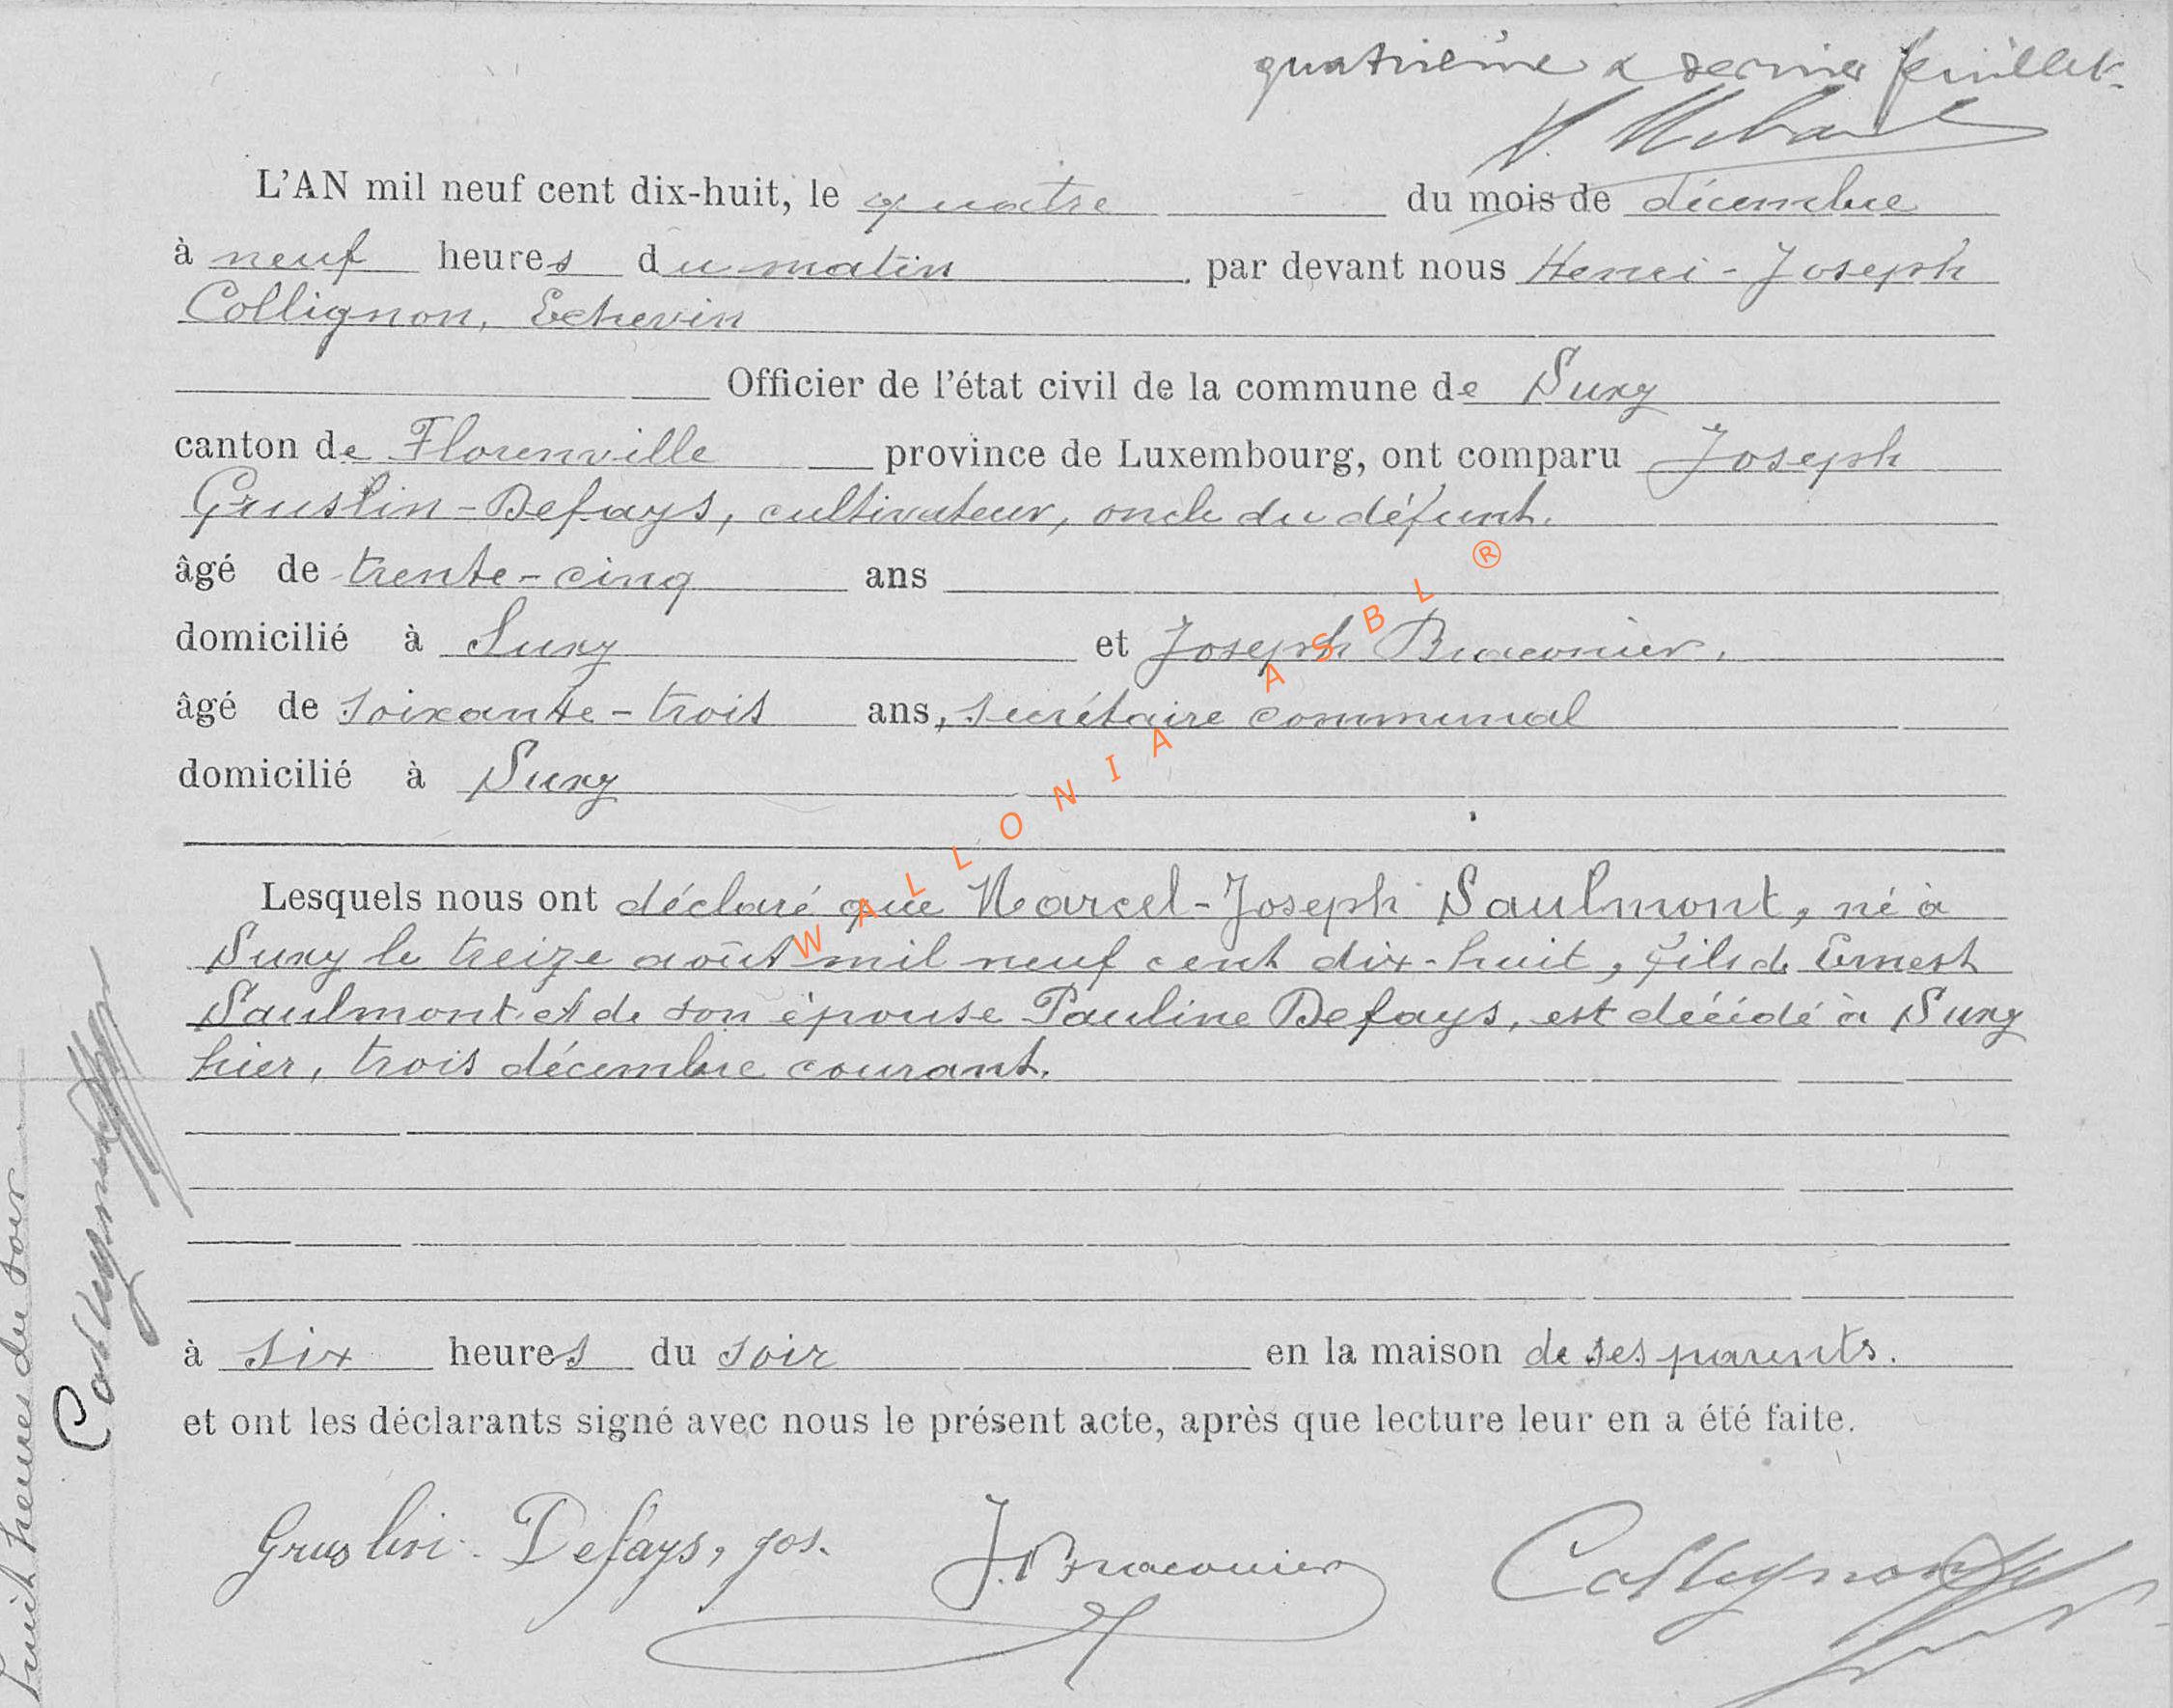 quatrième & dernier feuillet.
L'AN mil neuf cent dix-huit, le quatre du mois de décembre
à neuf heures du matin par devant nous Henri-Joseph
Collignon, Echevin
Officier de l'état civil de la commune de Suxy
canton de Florenville province de Luxembourg, ont comparu Joseph
Gruslin-Defays, cultivateur, oncle du défunt.
âgé de trente-cinq ans
domicilié à Suxy et Joseph Braconier,
âgé de soixante-trois ans, secrétaire communal
domicilié à Suxy
Lesquels nous ont déclaré que Marcel-Joseph Saulmont, né à
Suxy le treize août mil neuf cent dix-huit, fils de Ernest
Saulmont et de son épouse Pauline Defays, est décédé à Suxy
hier, trois décembre courant.
à six heures du soir en la maison de ses parents.
et ont les déclarants signé avec nous le présent acte, après que lecture leur en a été faite.
Gruslin-Defays, jos. J. Braconier Collignon
huit heures du soir
Collignon
WALLONIA ASBL ®